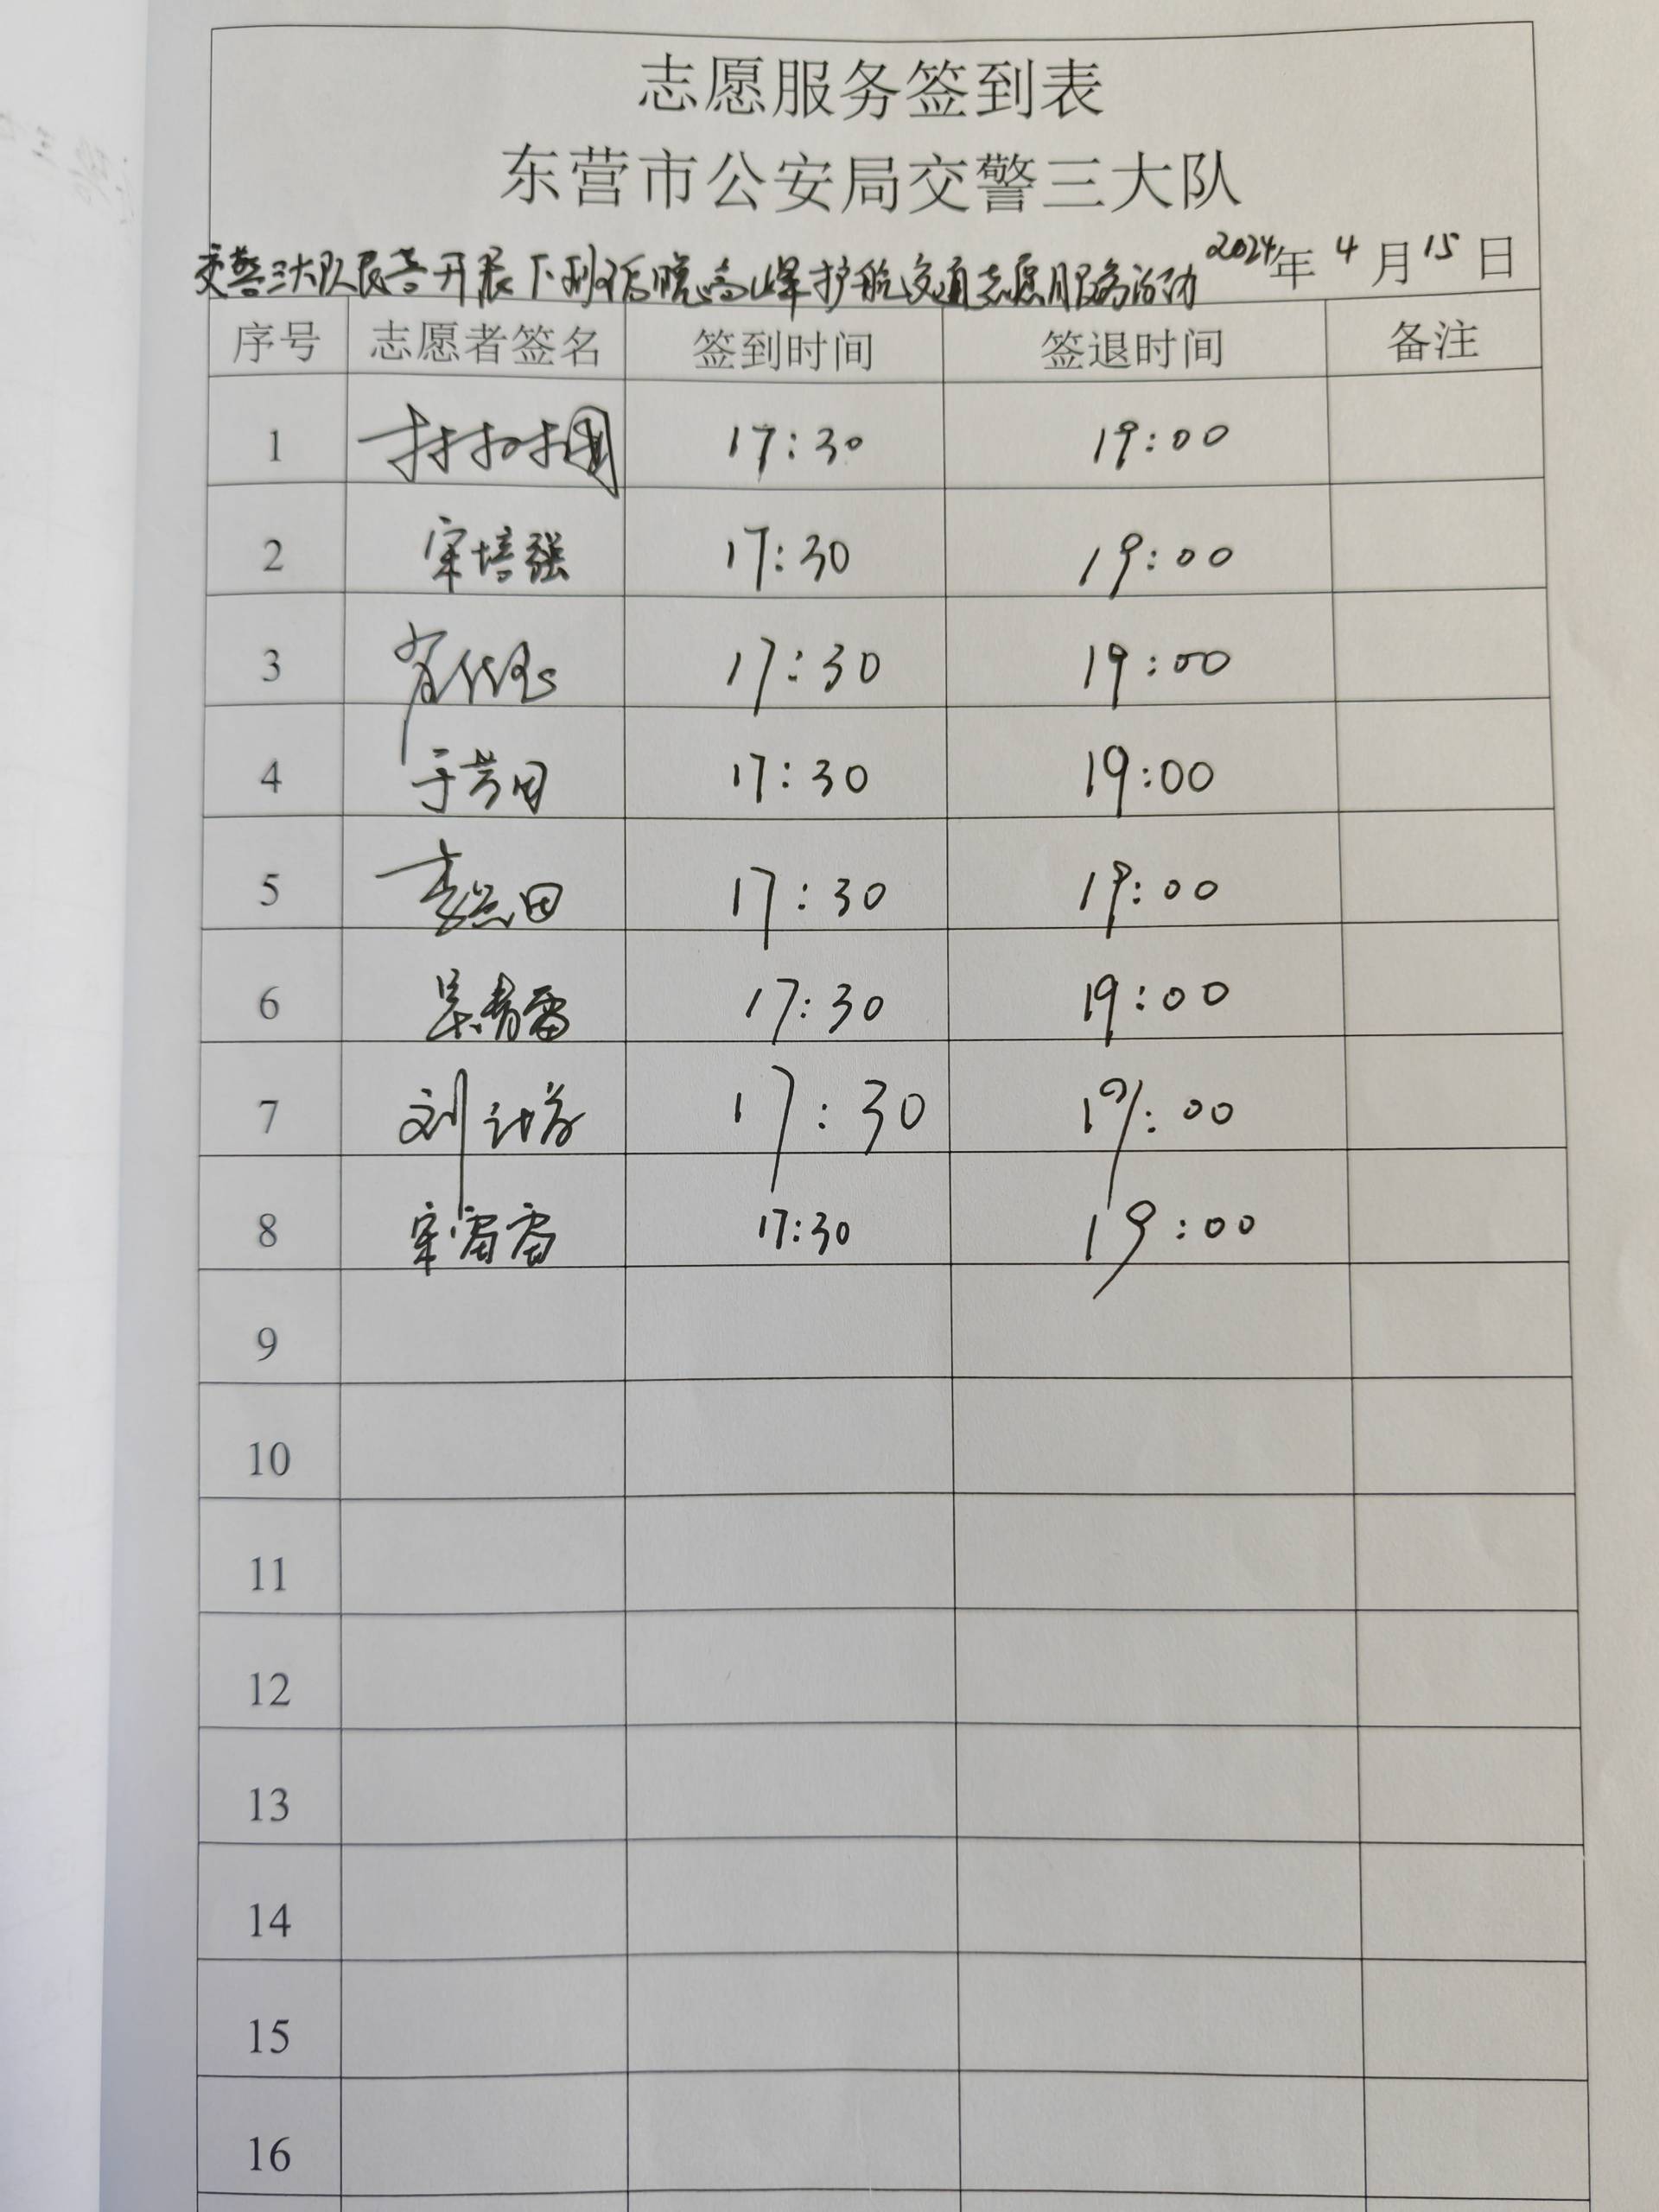 志愿服务签到表
东营市公安局交警三大队
交警三大队民警开展下班后晚高峰护航交通志愿服务活动 2024年 4月15日
序号 志愿者签名 签到时间 签退时间 备注
1 17:30 19:00
2 宋培强 17:30 19:00
3 17:30 19:00
4 于芳田 17:30 19:00
5 17:30 19:00
6 吴青雷 17:30 19:00
7 刘 17:30 19:00
8 宋雷雷 17:30 19:00
9
10
11
12
13
14
15
16